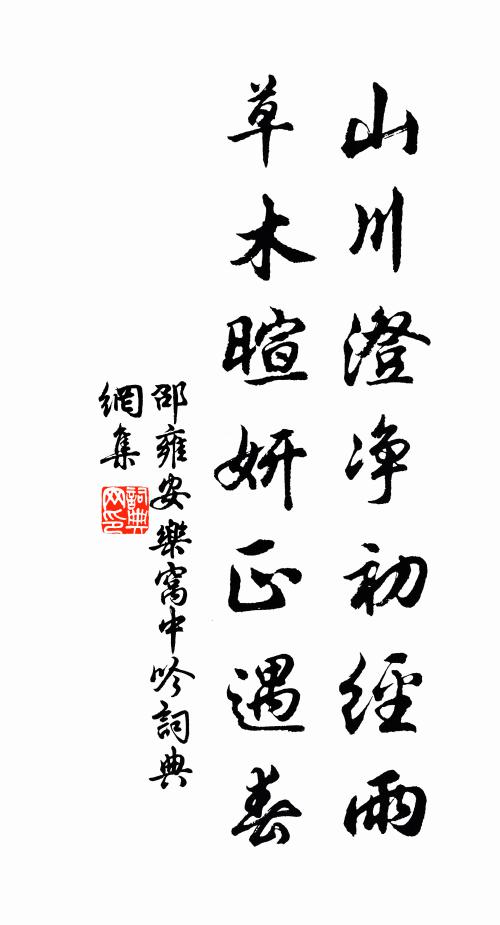 山川澄净初經雨
草木暄妍正遇春
邵雍安樂窩中吟詞典
網集
詞典
网印